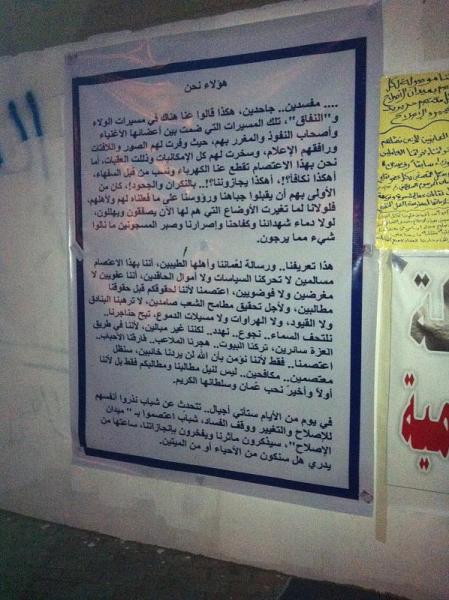 هؤلاء نحن
.... مفسدين.. جاحدين، هكذا قالوا عنا هناك في مسيرات الولاء
و"النفاق"، تلك المسيرات التي ضمت بين أعضائها الأغنياء
وأصحاب النفوذ والمغرر بهم، حيث وفرت لهم الصور واللافتات
ورافقهم الإعلام، وسخرت لهم كل الإمكانيات وذللت العقبات، أما
نحن بهذا الاعتصام تقطع عنا الكهرباء ونسب من قبل السفهاء،
أهكذا نكافأ؟!، أهكذا يجازوننا؟!.. بالنكران والجحود!، كان من
الأولى بهم أن يقبلوا جباهنا ورؤوسنا على ما فعلناه لهم ولأهلهم،
فلولانا لما تغيرت الأوضاع التي هم لها الآن يصفقون ويهللون،
لولا دماء شهدائنا وكفاحنا وإصرارنا وصبر المسجونين ما نالوا
شيء مما يرجون.
هذا تعريفنا.. ورسالة لعُماننا وأهلها الطيبين، أننا بهذا الاعتصام
مسالمين لا تحركنا السياسات ولا أموال الحاقدين، أننا عفويين لا
مغرضين ولا فوضويين، اعتصمنا لأننا لحقوقكم قبل حقوقنا
مطالبين، ولأجل تحقيق مطامح الشعب صامدين، لا ترهبنا البنادق
ولا القيود، ولا الهراوات ولا مسيلات الدموع، تبح حناجرنا..
نلتحف السماء.. نجوع.. نهدد.. لكننا غير مبالين، لأننا في طريق
العزة سائرين، تركنا البيوت.. هجرنا الملاعب.. فارقنا الأحباب..
اعتصمنا.. فقط لأننا نؤمن بأن الله لن يردنا خائبين، سنظل
معتصمين.. مكافحين.. ليس لنيل مطالبنا ومطالبكم فقط بل لأننا
أولاً وأخيرً نحب عُمان وسلطانها الكريم.
في يوم من الأيام ستأتي أجيال.. تتحدث عن شباب نذروا أنفسهم
للإصلاح والتغيير ووقف الفساد، شباب اعتصموا بـ "ميدان
الإصلاح"، سيذكرون مآثرنا ويفخرون بإنجازاتنا، ساعتها من
يدري هل سنكون من الأحياء أو من الميتين.